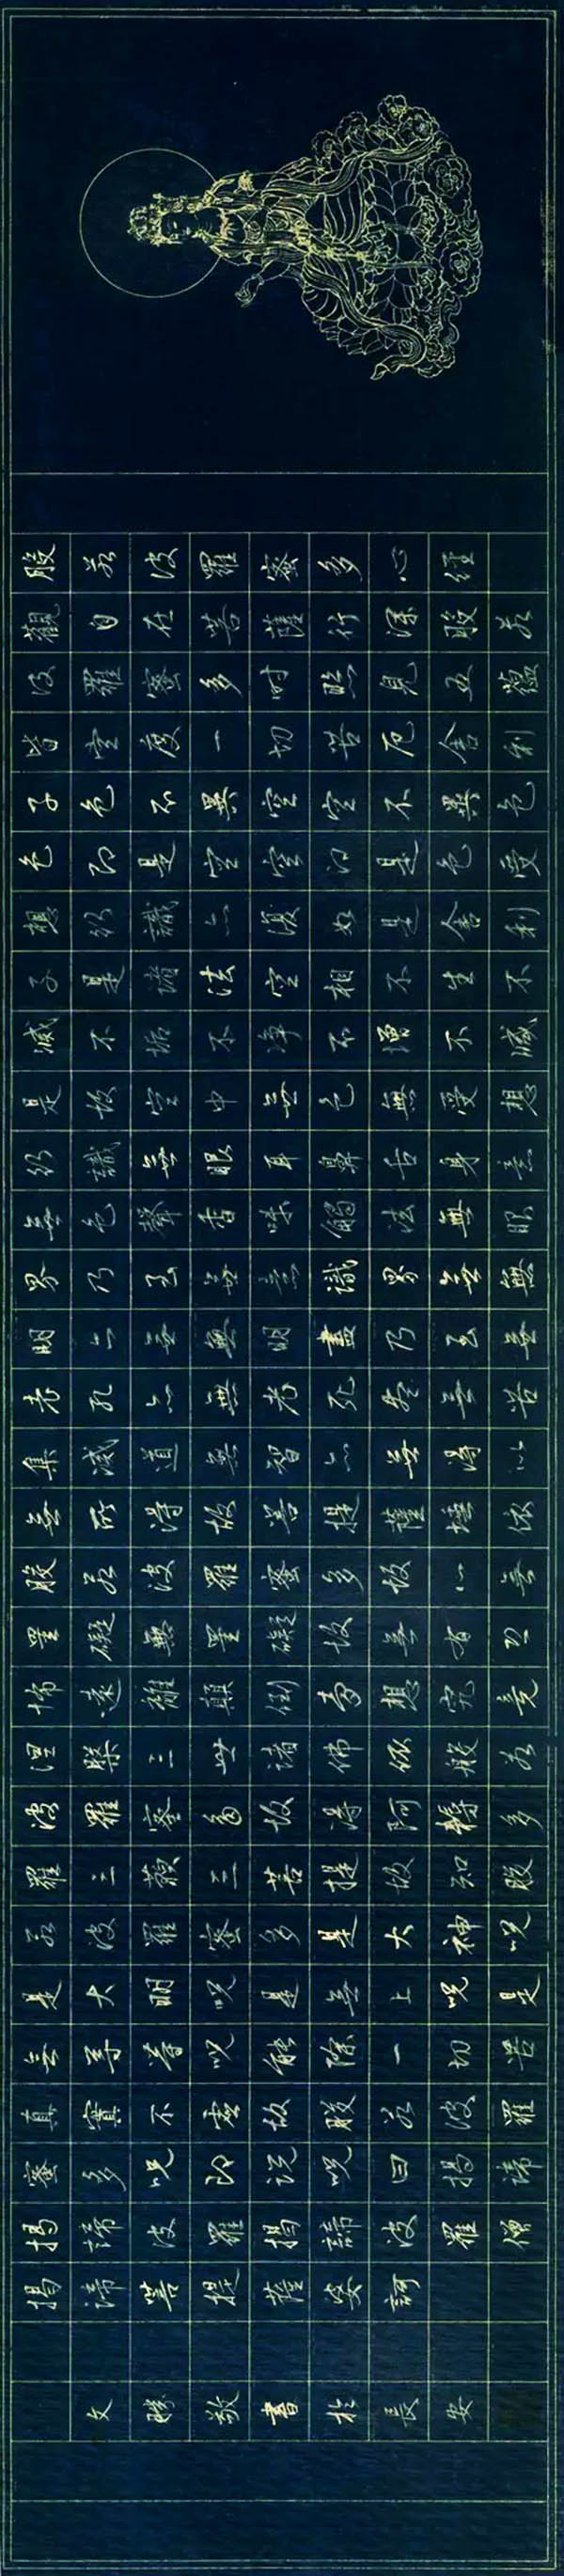 般若波羅蜜多心經
觀自在菩薩行深般若
波羅蜜多时照見五蘊
皆空度一切苦厄舍利
子色不異空空不異色
色即是空空即是色受
想行識亦復如是舍利
子是諸法空相不生不
滅不垢不淨不增不減
是故空中無色無受想
行識無眼耳鼻舌身意
無色聲香味觸法無眼
界乃至無意識界無無
明亦無無明盡乃至無
老死亦無老死盡無苦
集滅道無智亦無得以
無所得故菩提薩埵依
般若波羅蜜多故心無
罣礙無罣礙故無有恐
怖遠離顛倒夢想究竟
涅槃三世諸佛依般若
波羅蜜多故得阿耨多
羅三藐三菩提故知般
若波羅蜜多是大神咒
是大明咒是無上咒是
無等等咒能除一切苦
真實不虛故般若波羅
蜜多咒即說咒曰揭諦
揭諦波羅揭諦波羅僧
揭諦菩提薩婆訶
文勝敬書於長安